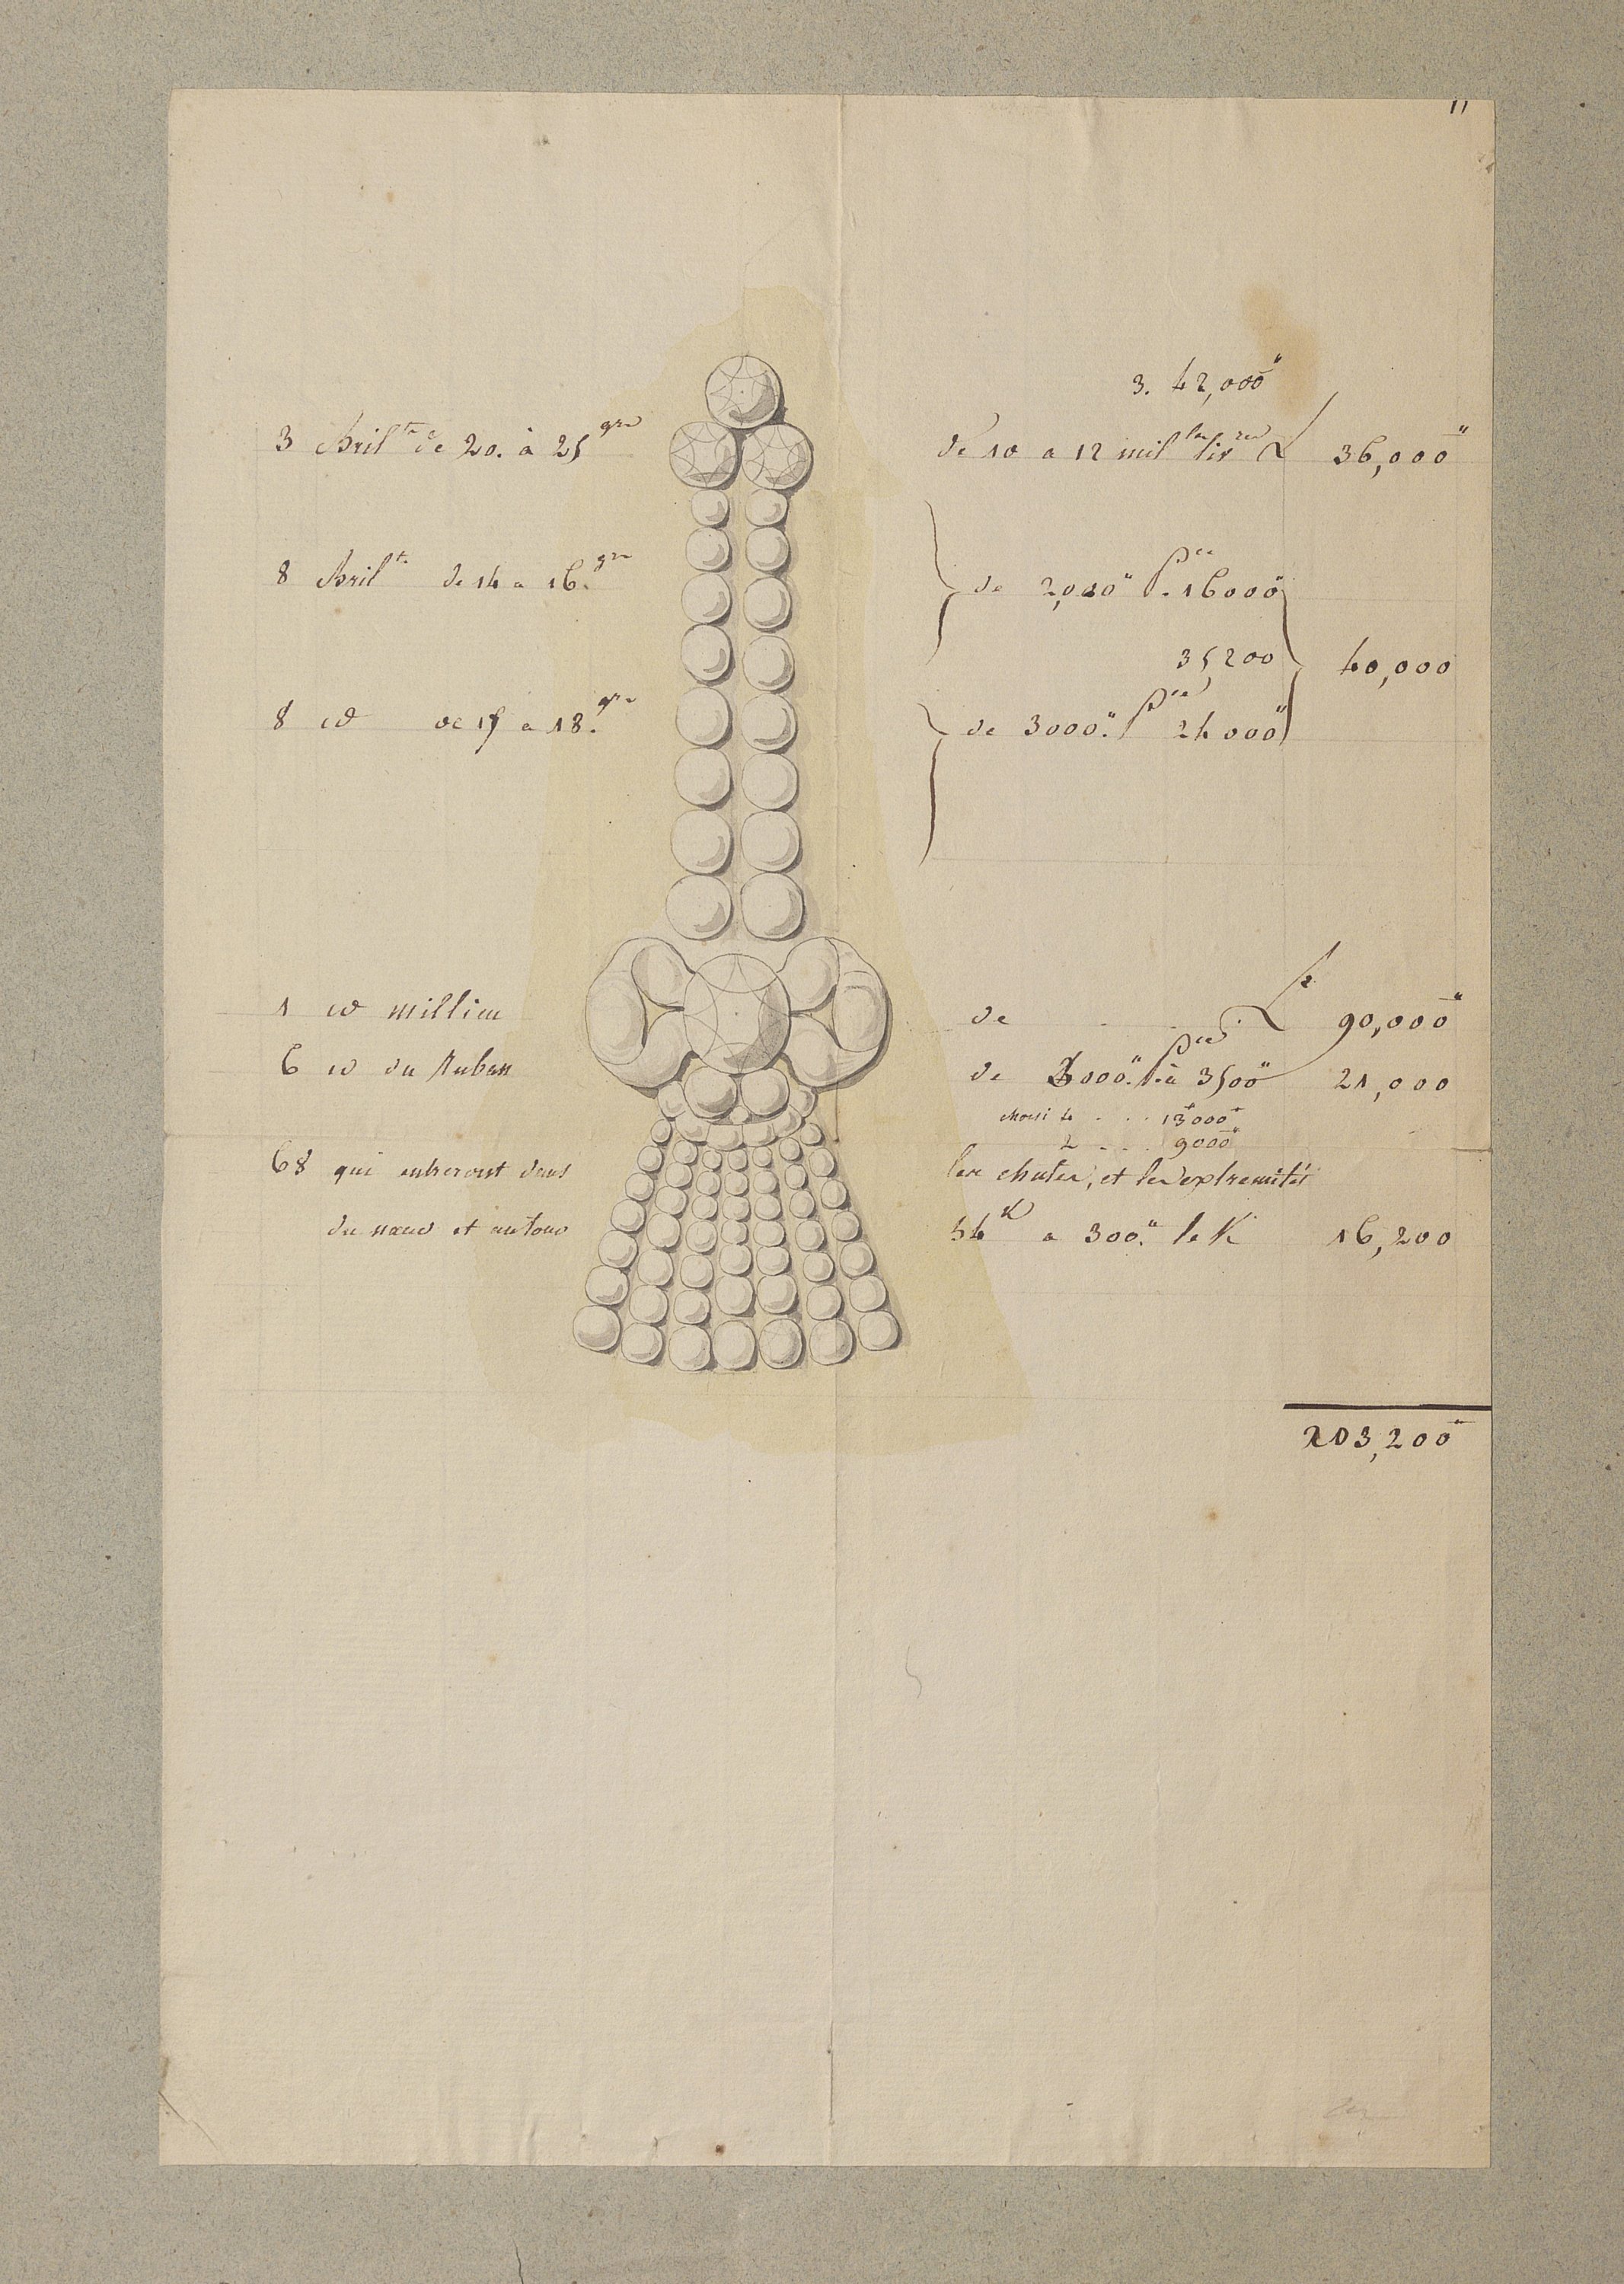 11
3. 42,000"
3 Brilts de 20. à 25 grs de 10 a 12 mil les lis res 36,000"
8 Brilts de 14 a 16. grs de 2,000" pce. 16000"
35,200 40,000
8 id de 15 a 18. grs de 3000." pce 24000"
1 id millieu de . . . 90,000"
6 id du Ruban de 3000." pce à 3500" 21,000
choisi 4 . . . 13000"
2 . . . 9000"
68 qui entreront dans les chutes, et les extremités
du nœud et autour 54 K a 300." le K 16,200
203,200"